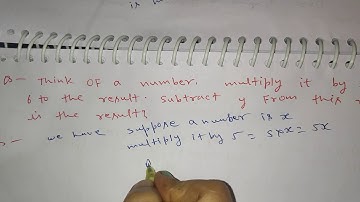 is m
Q- Think OF a number. multiply it by
6 to the result. subtract y From this
is the result?
we have suppose a number is x
multiply it by 5 = 5×x = 5x